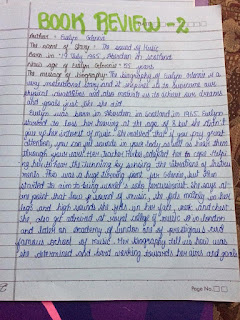 BOOK REVIEW - 2
Author : Evelyn Glennie
The sound of Story - The sound of Music
Born in : 19 July 1965, Aberdeen in Scotland
Now age of Evelyn Glennie : 55 years
The message of biography : The biography of Evelyn Glennie is a
very motivational story and it inspired us to overcome our
physical disabilities and also motivate us to achieve our dreams
and goals just like she did.
Evelyn was born in Aberdeen in Scotland in 1965. Evelyn
started to lose her hearing at the age of 8 but she didn't
give up her interest of music. She realised that if you pay great
attention, you can get sounds in your body as well as hear them
through your ears. Her teacher helped her to cope. Helping
her to hear the by sensing the vibrations of instru-
ments. This was a huge turning point for Glennie, but then
started to aim to being world's solo percussionist. She says at
one point that low sound of music, she feels mostly in her
legs and high sounds she feels in her face, neck and chest.
She also got admired at royal college of music in London
and London one of prestigious and
famous school of music. Her biography tell us how was
she determined and hard working towards her aims and goals.
Page No.